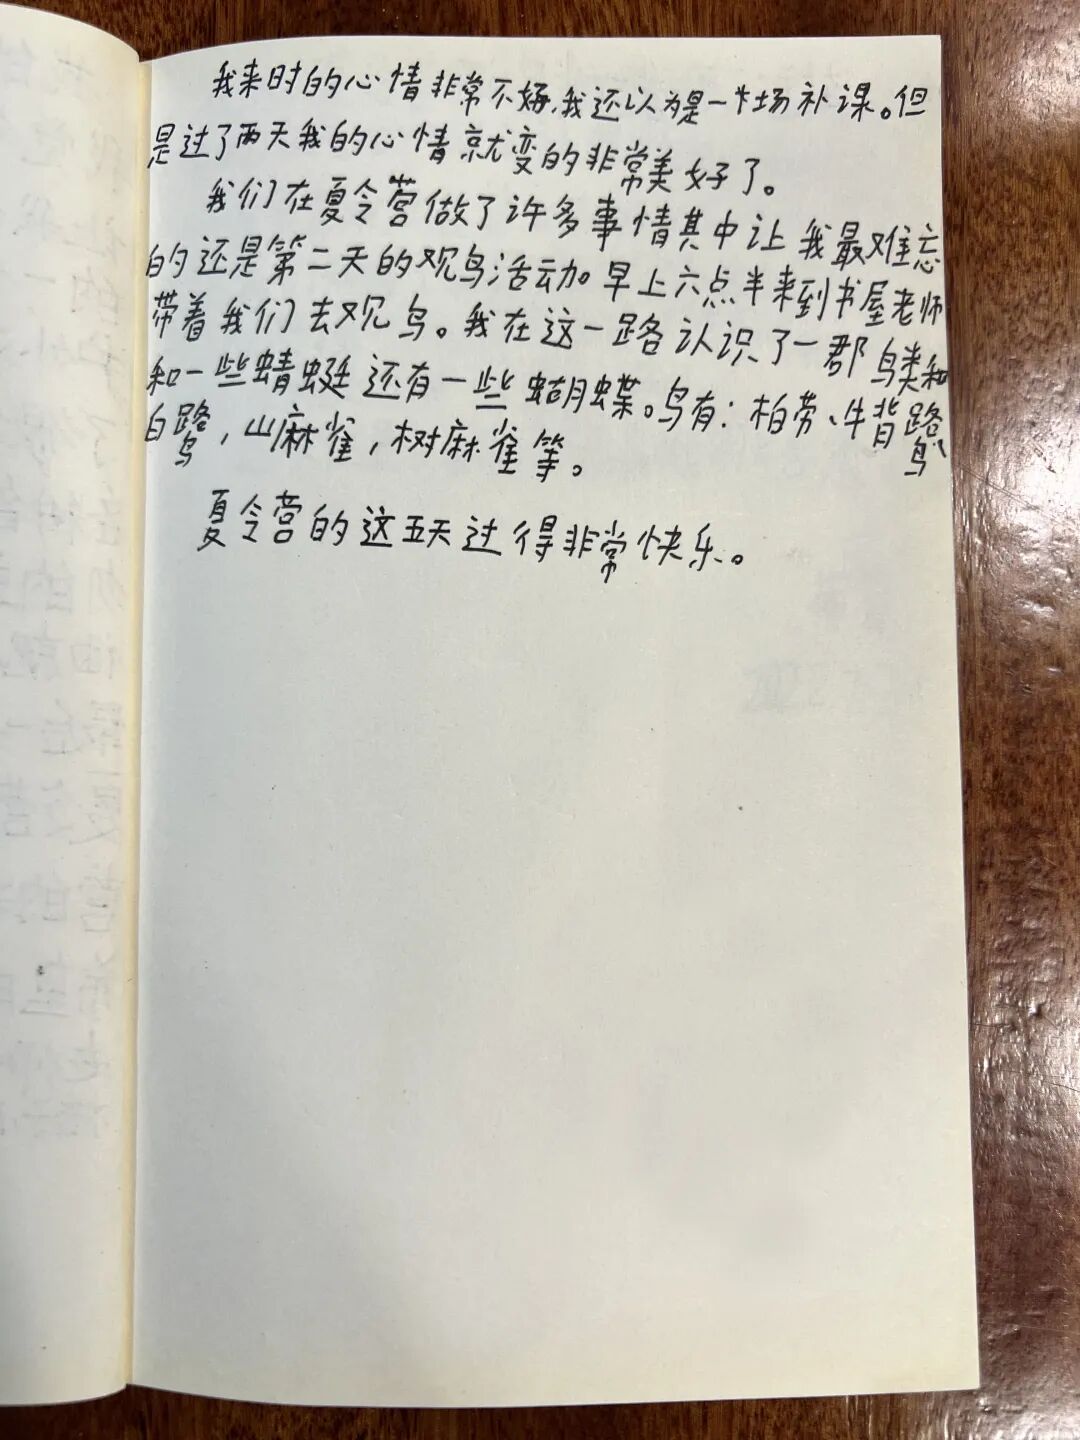 我来时的心情非常不好,我还以为是一场补课。但
是过了两天我的心情就变的非常美好了。
我们在夏令营做了许多事情其中让我最难忘
的还是第二天的观鸟活动。早上六点半来到书屋老师
带着我们去观鸟。我在这一路认识了一郡鸟类和
和一些蜻蜓还有一些蝴蝶。鸟有:柏劳、牛背鹭、
白鹭,山麻雀,树麻雀等。
夏令营的这五天过得非常快乐。